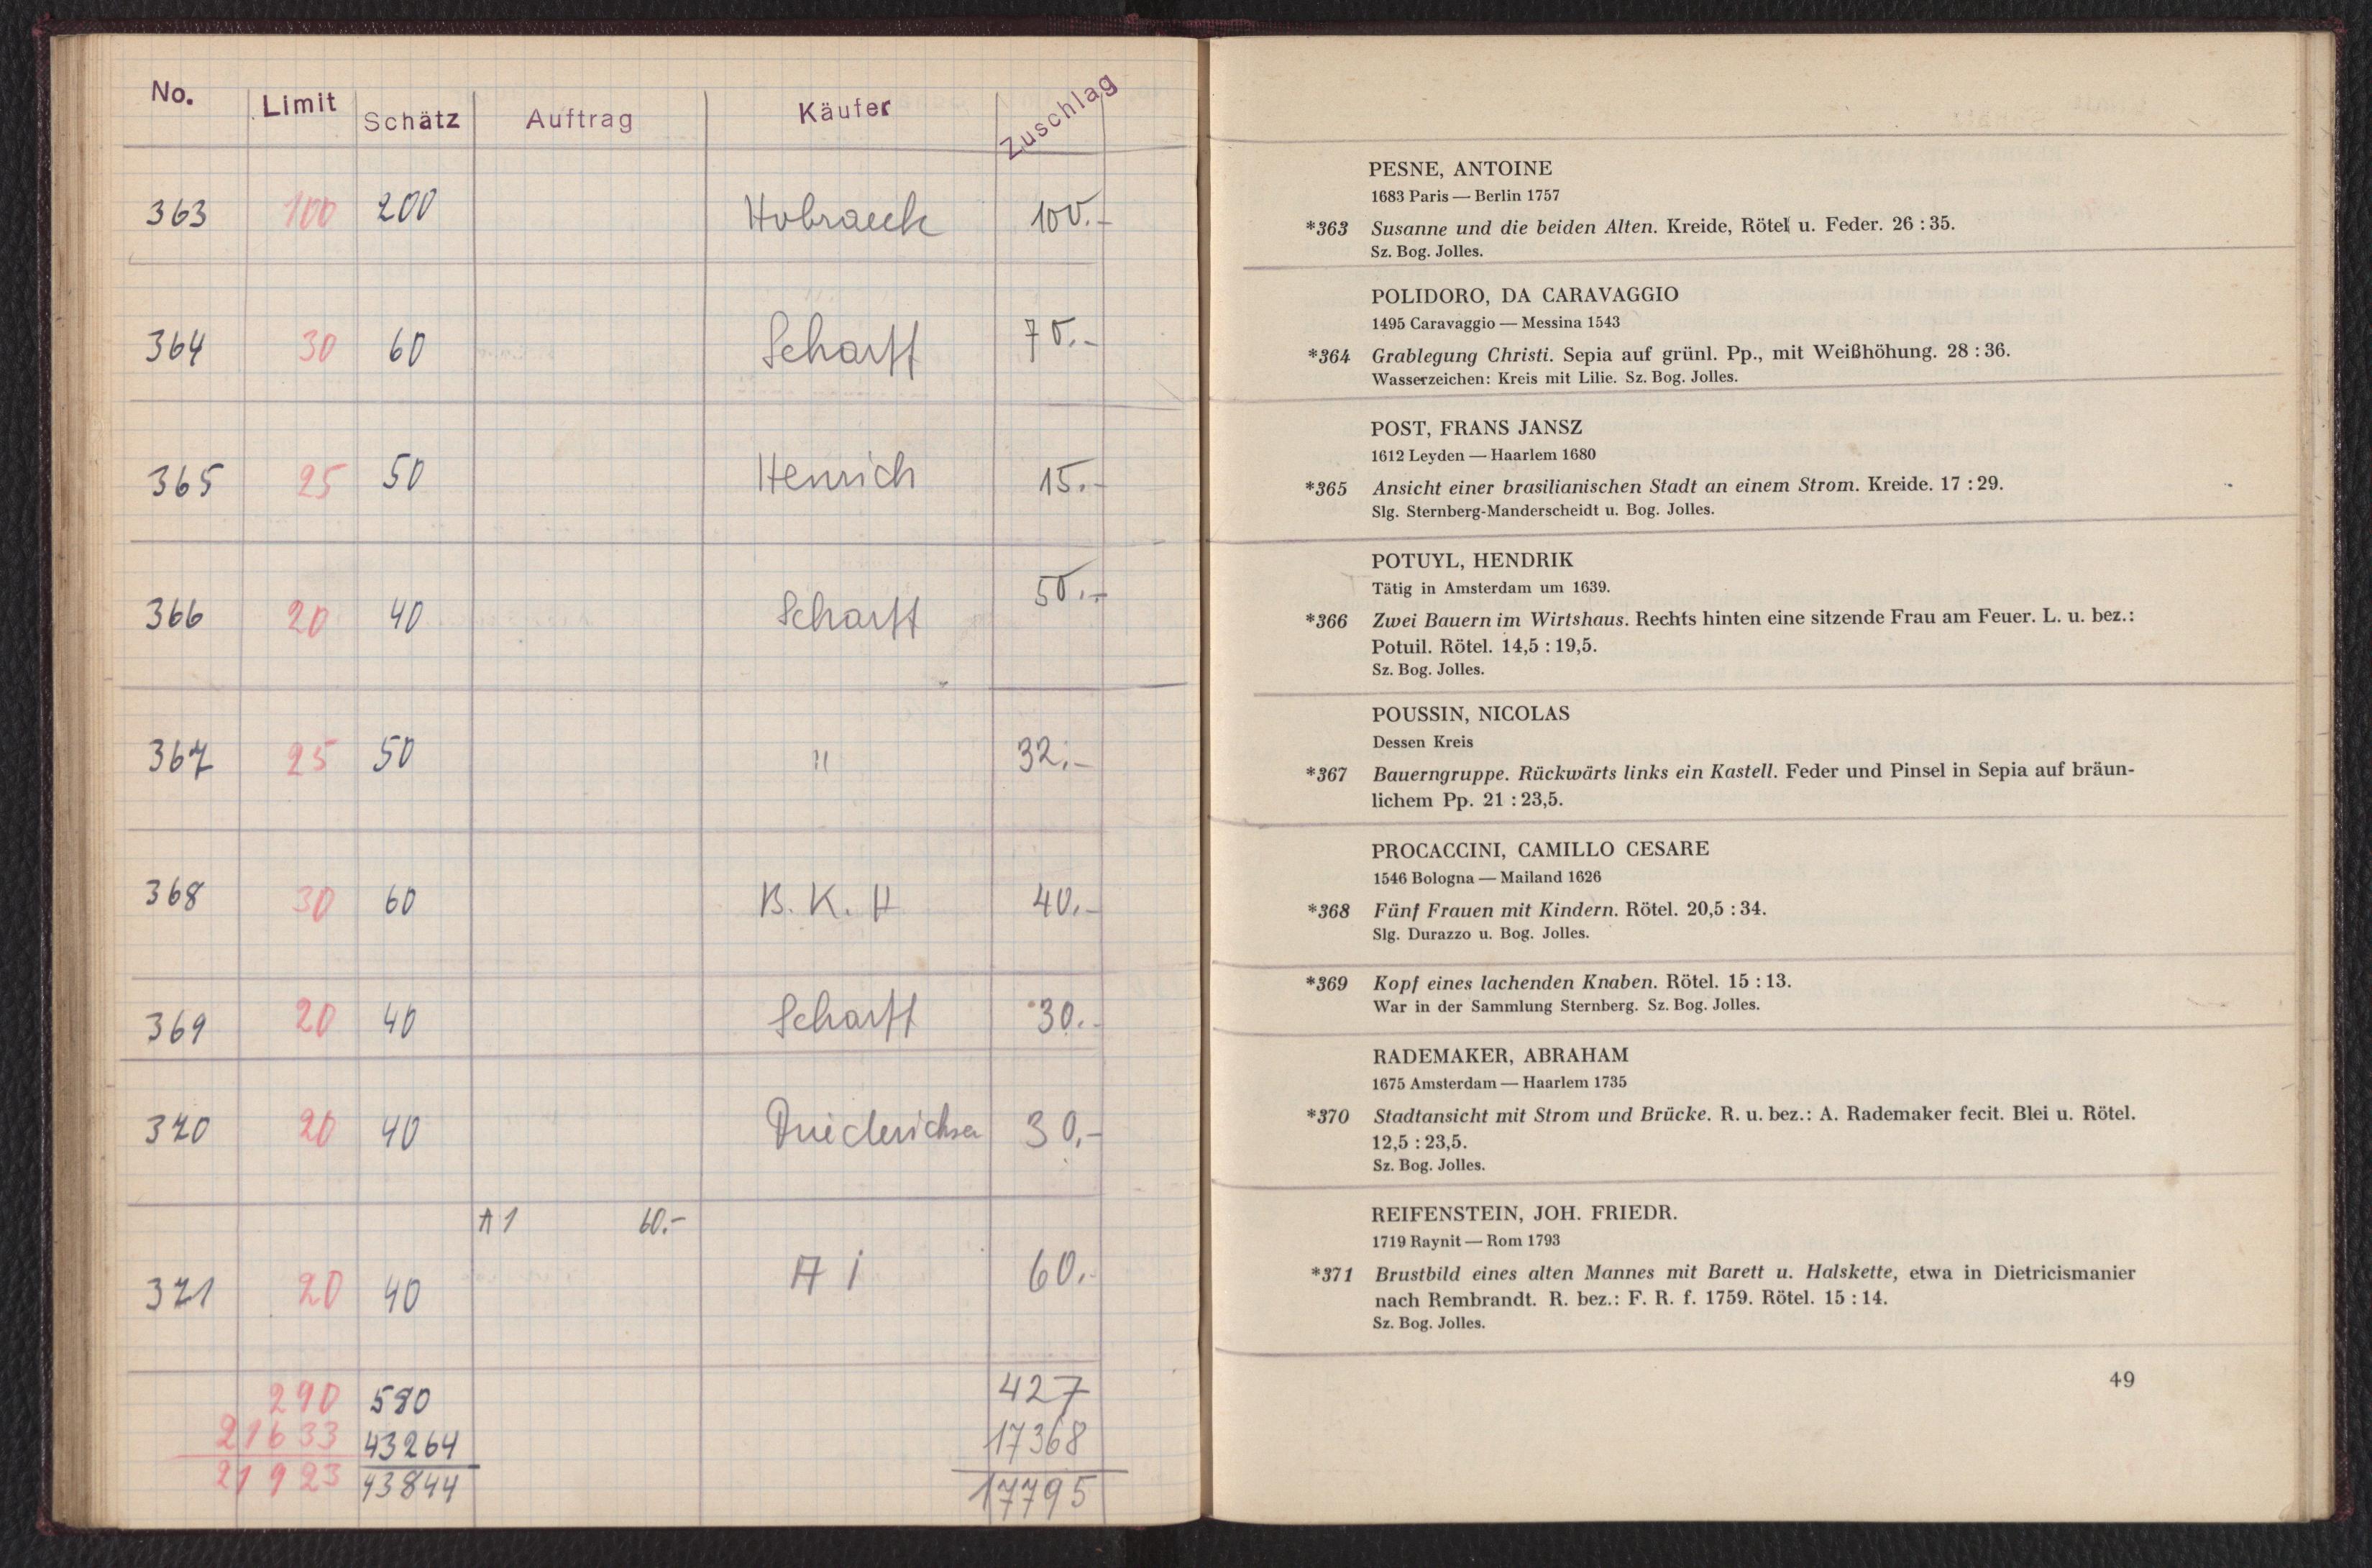 No. Limit Schätz Auftrag Käufer Zuschlag
363 100 200 100.-
364 30 60 Scharff 70.-
365 25 50 Henrich 15.-
366 20 40 Scharff 50.-
367 25 50 " 32.-
368 30 60 B. K. H 40.-
369 20 40 Scharff 30.-
370 20 40 30.-
A 1 60.-
371 20 40 A 1 60.-
290 580 427
21633 43264 17368
21923 43844 17795
PESNE, ANTOINE
1683 Paris — Berlin 1757
*363 Susanne und die beiden Alten. Kreide, Rötel u. Feder. 26 : 35.
Sz. Bog. Jolles.
POLIDORO, DA CARAVAGGIO
1495 Caravaggio — Messina 1543
*364 Grablegung Christi. Sepia auf grünl. Pp., mit Weißhöhung. 28 : 36.
Wasserzeichen: Kreis mit Lilie. Sz. Bog. Jolles.
POST, FRANS JANSZ
1612 Leyden — Haarlem 1680
*365 Ansicht einer brasilianischen Stadt an einem Strom. Kreide. 17 : 29.
Slg. Sternberg-Manderscheidt u. Bog. Jolles.
POTUYL, HENDRIK
Tätig in Amsterdam um 1639.
*366 Zwei Bauern im Wirtshaus. Rechts hinten eine sitzende Frau am Feuer. L. u. bez.:
Potuil. Rötel. 14,5 : 19,5.
Sz. Bog. Jolles.
POUSSIN, NICOLAS
Dessen Kreis
*367 Bauerngruppe. Rückwärts links ein Kastell. Feder und Pinsel in Sepia auf bräun-
lichem Pp. 21 : 23,5.
PROCACCINI, CAMILLO CESARE
1546 Bologna — Mailand 1626
*368 Fünf Frauen mit Kindern. Rötel. 20,5 : 34.
Slg. Durazzo u. Bog. Jolles.
*369 Kopf eines lachenden Knaben. Rötel. 15 : 13.
War in der Sammlung Sternberg. Sz. Bog. Jolles.
RADEMAKER, ABRAHAM
1675 Amsterdam — Haarlem 1735
*370 Stadtansicht mit Strom und Brücke. R. u. bez.: A. Rademaker fecit. Blei u. Rötel.
12,5 : 23,5.
Sz. Bog. Jolles.
REIFENSTEIN, JOH. FRIEDR.
1719 Raynit — Rom 1793
*371 Brustbild eines alten Mannes mit Barett u. Halskette, etwa in Dietricismanier
nach Rembrandt. R. bez.: F. R. f. 1759. Rötel. 15 : 14.
Sz. Bog. Jolles.
49